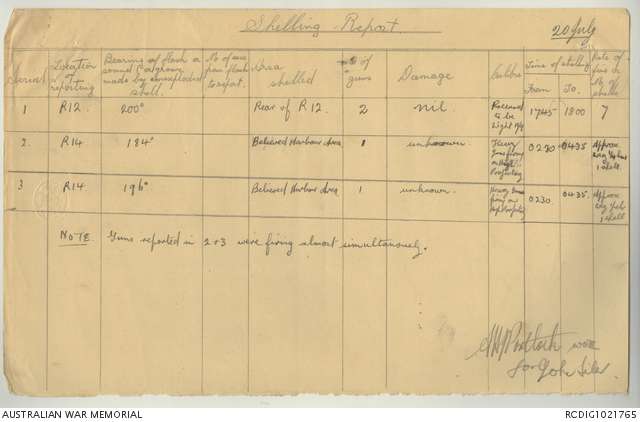 Shelling Report.
20 July
Serial | Location of reporting | Bearing of Flash or sound or groove made by unexploded shell. | No of secs from flash to report. | Area shelled | No of guns | Damage | Calibre | Time of shelling From To. | Rate of fire or No of shells
1 | R12. | 200° | | Rear of R12. | 2 | nil. | to be Light | 1745 | 1800 | 7
2. | R14 | 184° | | Believed Harbour Area | 1 | unknown. | Heavy | 0230 | 0435 | Approx 1 shell
3 | R14 | 196° | | Believed Harbour Area. | 1 | unknown. | Heavy | 0230 | 0435. | Approx 1 shell
NOTE. Guns reported in 2+3 were firing almost simultaneously.
for
AUSTRALIAN WAR MEMORIAL
RCDIG1021765